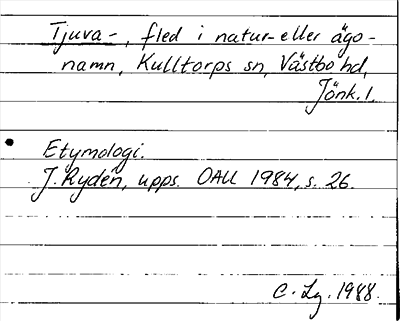 Tjuva-, fled i natur- eller ägo-
namn, Kulltorps sn, Västbo hd,
Jönk. l.
Etymologi.
J. Rydén, upps. OAU 1984, s. 26.
C. Lg. 1988.